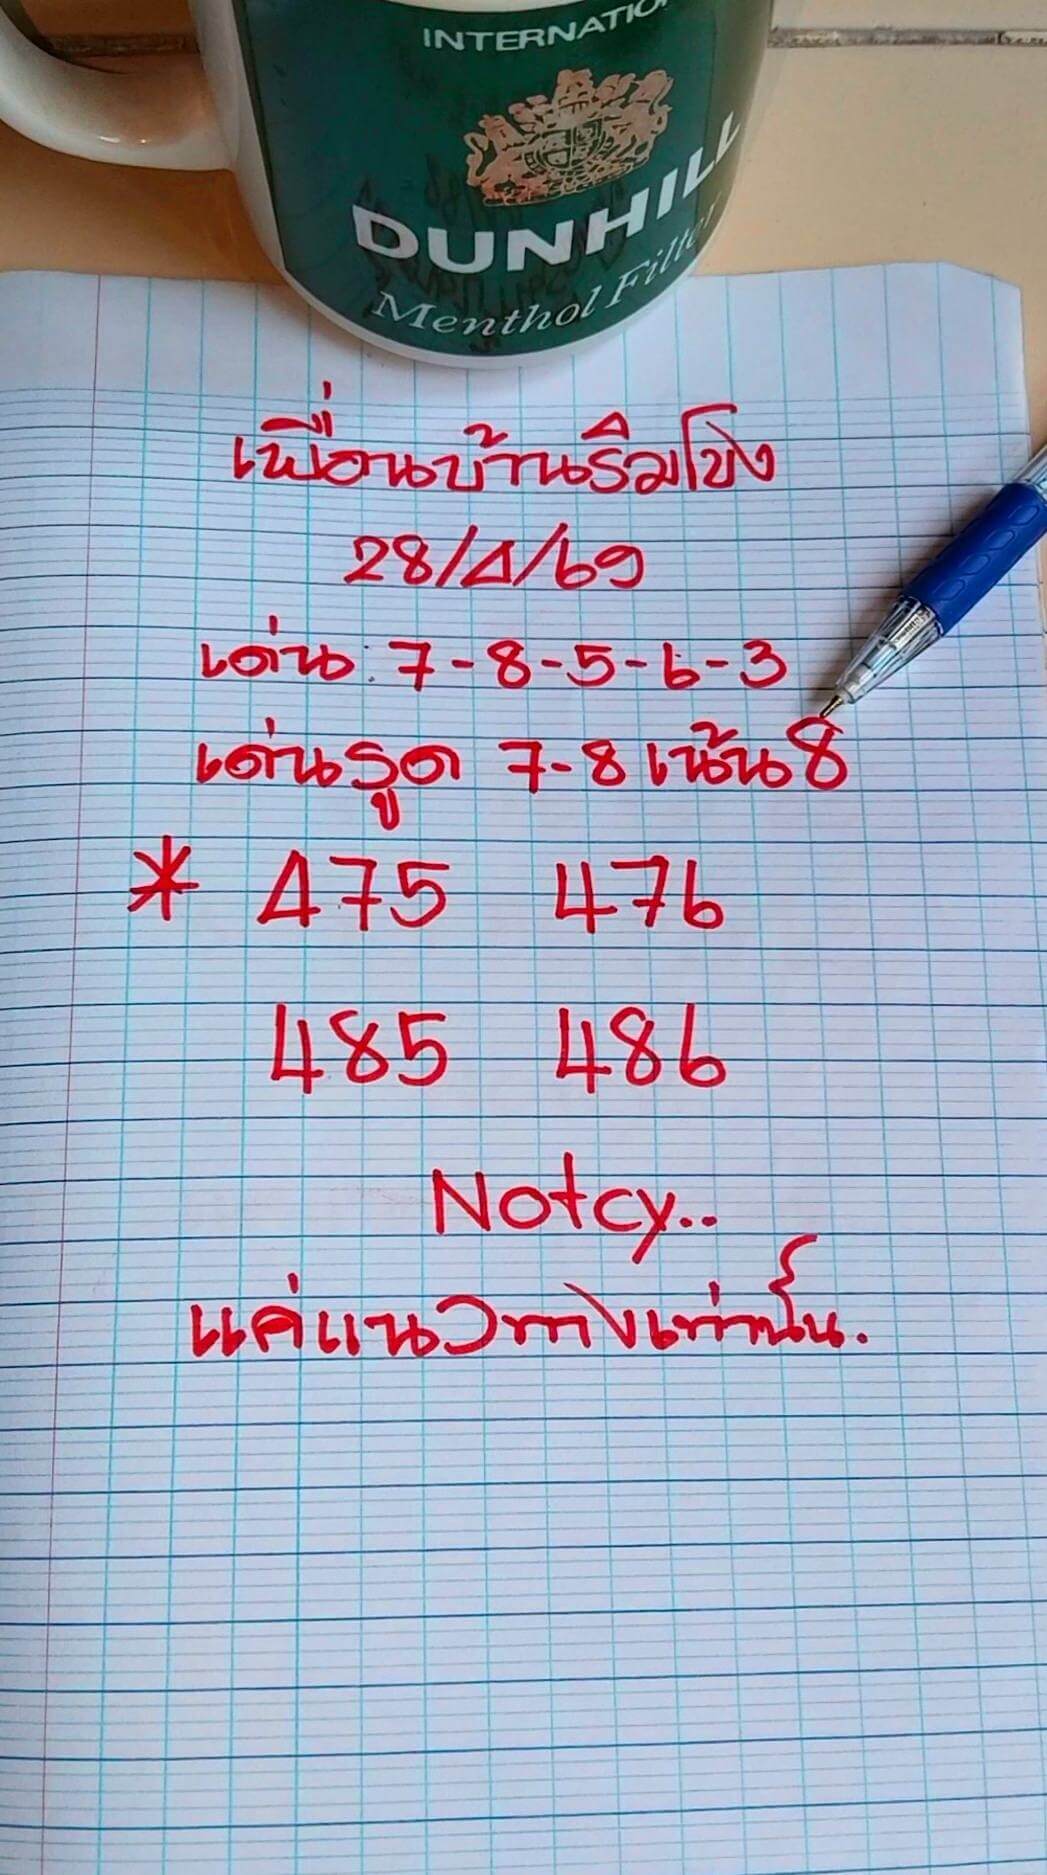 INTERNATIO
DUNHILL
Menthol Filter
เพื่อนบ้านริมโขง
28/4/69
เด่น: 7-8-5-6-3
เด่นรูด 7-8 เน้น 8
* 475 476
485 486
Notcy..
แค่แนวทางเท่านั้น.